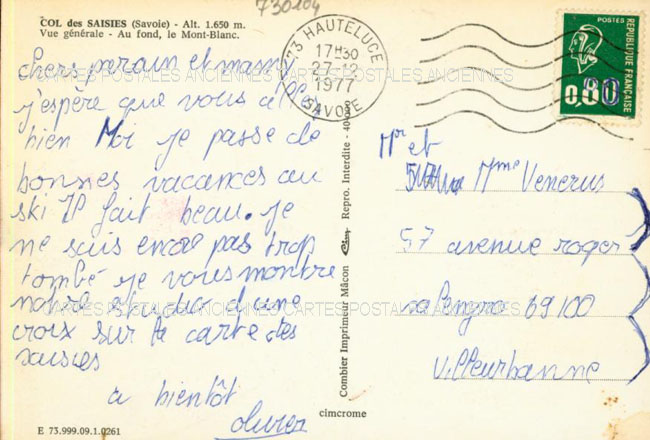 730104
COL des SAISIES (Savoie) - Alt. 1.650 m.
Vue générale - Au fond, le Mont-Blanc.
chers parain et mami
j'espère que vous allé
bien Moi je passe de
bonnes vacances au
ski Il fait beau. je
ne suis encor pas trop
tombé je vous montre
notre d'une
croix sur la carte des
saisies
a bientôt
olivier
E 73.999.09.1.0261
cimcrome
Combier Imprimeur Mâcon
Repro. Interdite -
73 HAUTELUCE
17H30
27-12
1977
SAVOIE
POSTES
REPUBLIQUE FRANÇAISE
0,80
Mr et
Mme Venerus
57 avenue roger
salengro 69100
Villeurbanne
CARTES POSTALES ANCIENNES CARTES POSTALES ANCIENNES
CARTES POSTALES ANCIENNES CARTES POSTALES ANCIENNES